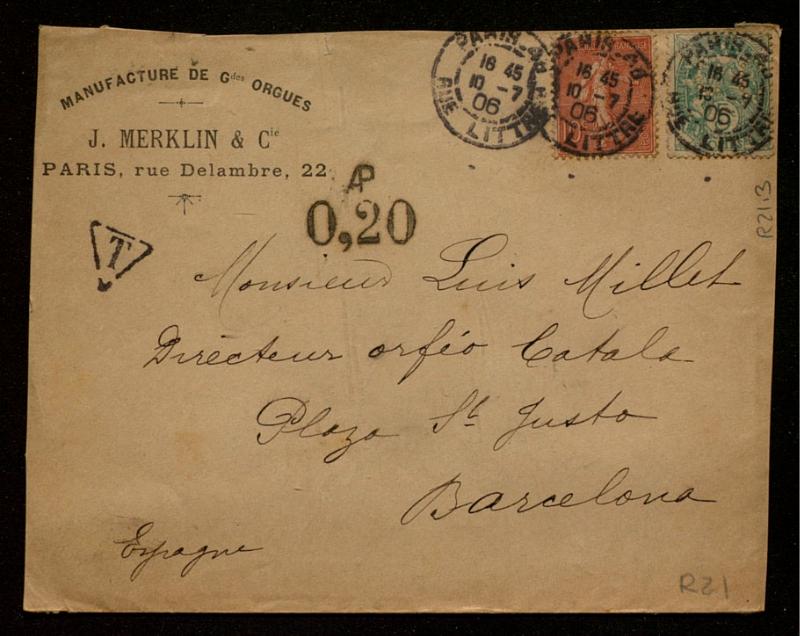 MANUFACTURE DE Gdes ORGUES
J. MERKLIN & Cie
PARIS, rue Delambre, 22
PARIS-48
16 45
10 -7
06
RUE LITTRÉ
PARIS-48
16 45
10 -7
06
RUE LITTRÉ
PARIS-48
16 45
-7
06
RUE LITTRÉ
10
AP
0,20
T
R21.3
Monsieur Luis Millet
Directeur orféo Catala
Plaza St Justo
Barcelona
Espagne
R21